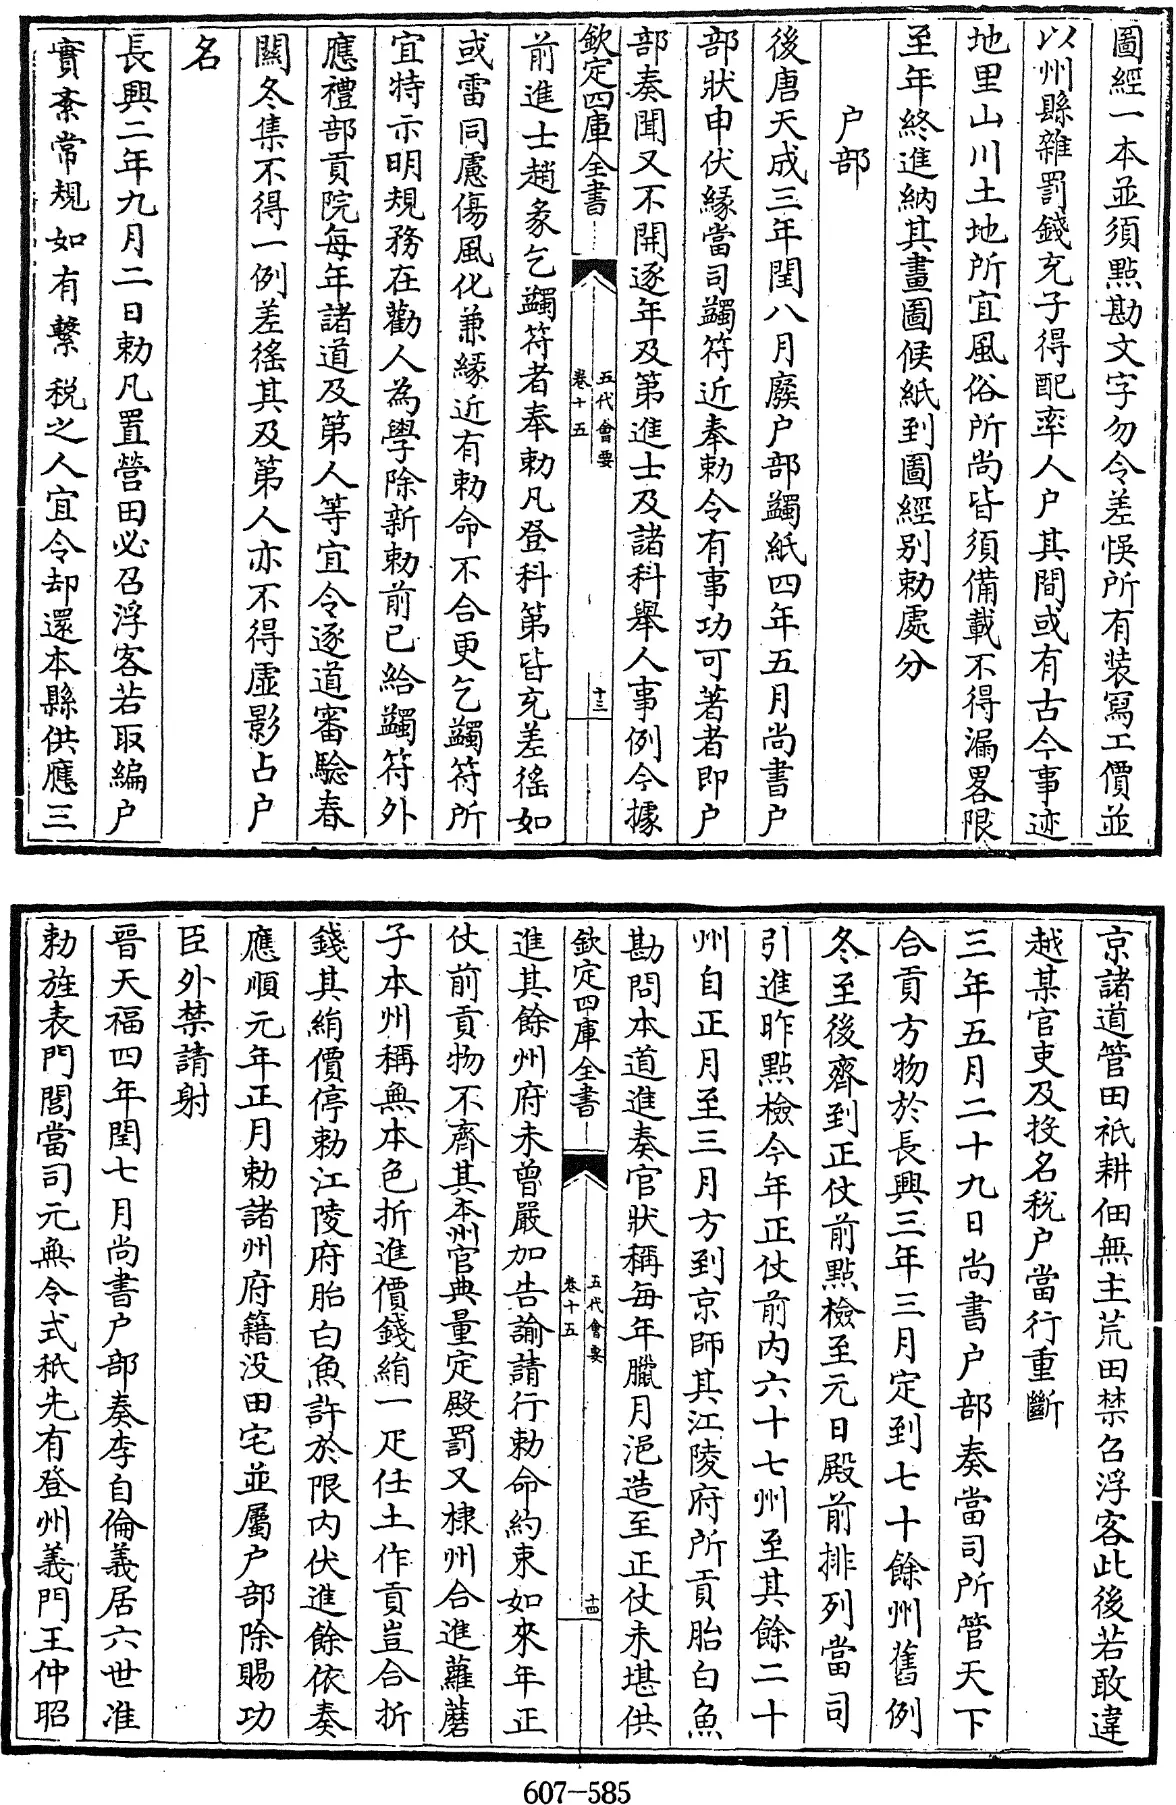 圖經一本並須點勘文字勿令差悮所有装寫工價並
以州縣雜罰錢充子得配率人户其間或有古今事迹
地里山川土地所宜風俗所尚皆須備載不得漏畧限
至年終進納其畫圖候紙到圖經别勅處分
户部
後唐天成三年閏八月廢户部蠲紙四年五月尚書户
部狀申伏緣當司蠲符近奉勅令有事功可著者即户
部奏聞又不開逐年及第進士及諸科舉人事例今據
欽定四庫全書
五代會要
卷十五
十三
前進士趙彖乞蠲符者奉勅凡登科第皆充差徭如
或雷同慮傷風化兼緣近有勅命不合更乞蠲符所
宜特示明規務在勸人為學除新勅前已給蠲符外
應禮部貢院每年諸道及第人等宜令逐道審驗春
關冬集不得一例差徭其及第人亦不得虚影占户
名
長興二年九月二日勅凡置營田必召浮客若取編户
實紊常規如有繫税之人宜令却還本縣供應三
京諸道管田祇耕佃無主荒田禁召浮客此後若敢違
越某官吏及投名税户當行重斷
三年五月二十九日尚書户部奏當司所管天下
合貢方物於長興三年三月定到七十餘州舊例
冬至後齊到正仗前點檢至元日殿前排列當司
引進昨點檢今年正仗前内六十七州至其餘二十
州自正月至三月方到京師其江陵府所貢胎白魚
勘問本道進奏官狀稱每年臘月浥造至正仗未堪供
欽定四庫全書
五代會要
卷十五
十四
進其餘州府未曾嚴加告諭請行勅命約束如來年正
仗前貢物不齊其本州官典量定殿罰又棣州合進蘿蔴
子本州稱無本色折進價錢絹一疋任土作貢豈合折
錢其絹價停勅江陵府胎白魚許於限内伏進餘依奏
應順元年正月勅諸州府籍没田宅並屬户部除賜功
臣外禁請射
晉天福四年閏七月尚書户部奏李自倫義居六世准
勅旌表門閭當司元無令式秖先有登州義門王仲昭
607-585